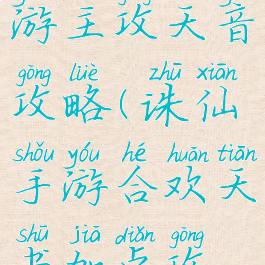 游主攻天音
gōng lüè zhū xiān
攻略(诛仙
shǒu yóu hé huān tiān
手游合欢天
shū jiā diǎn gōng
书加点攻